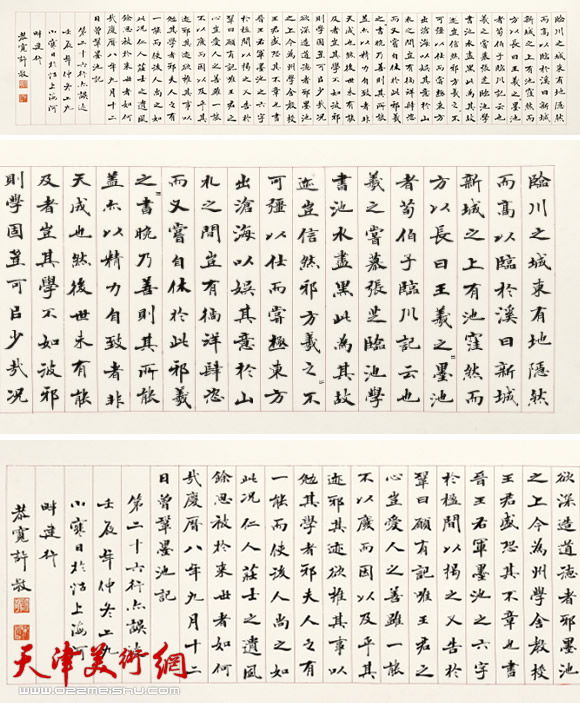 臨川之城東有地隱然
而高以臨於溪曰新城
新城之上有池窪然而
方以長曰王羲之墨池
者荀伯子臨川記云也
羲之嘗慕張芝臨池學
書池水盡黑此為其故
迹豈信然邪方羲之不
可彊以仕而嘗極東方
出滄海以娛其意於山
水之間豈有徜徉肆恣
而又嘗自休於此邪羲
之書晚乃善則其所能
蓋亦以精力自致者非
天成也然後世未有能
及者豈其學不如彼邪
則學固豈可以少哉況
欲深造道德者邪墨池
之上今為州學舍教授
王君盛恐其不章也書
晉王右軍墨池之六字
於楹間以揭之又告於
鞏曰願有記惟王君之
心豈愛人之善雖一能
不以廢而因以及乎其
迹邪其欲推其事以
勉其學者邪夫人之有
一能而使後人尚之如
此況仁人莊士之遺風
餘思被於來世者如何
哉慶曆八年九月十二
日曾鞏墨池記
第二十六行亦誤
壬辰年仲冬上九
小寒日於沽上海河
畔建行
恭寬許敬
天津美術網
www.022meishu.com